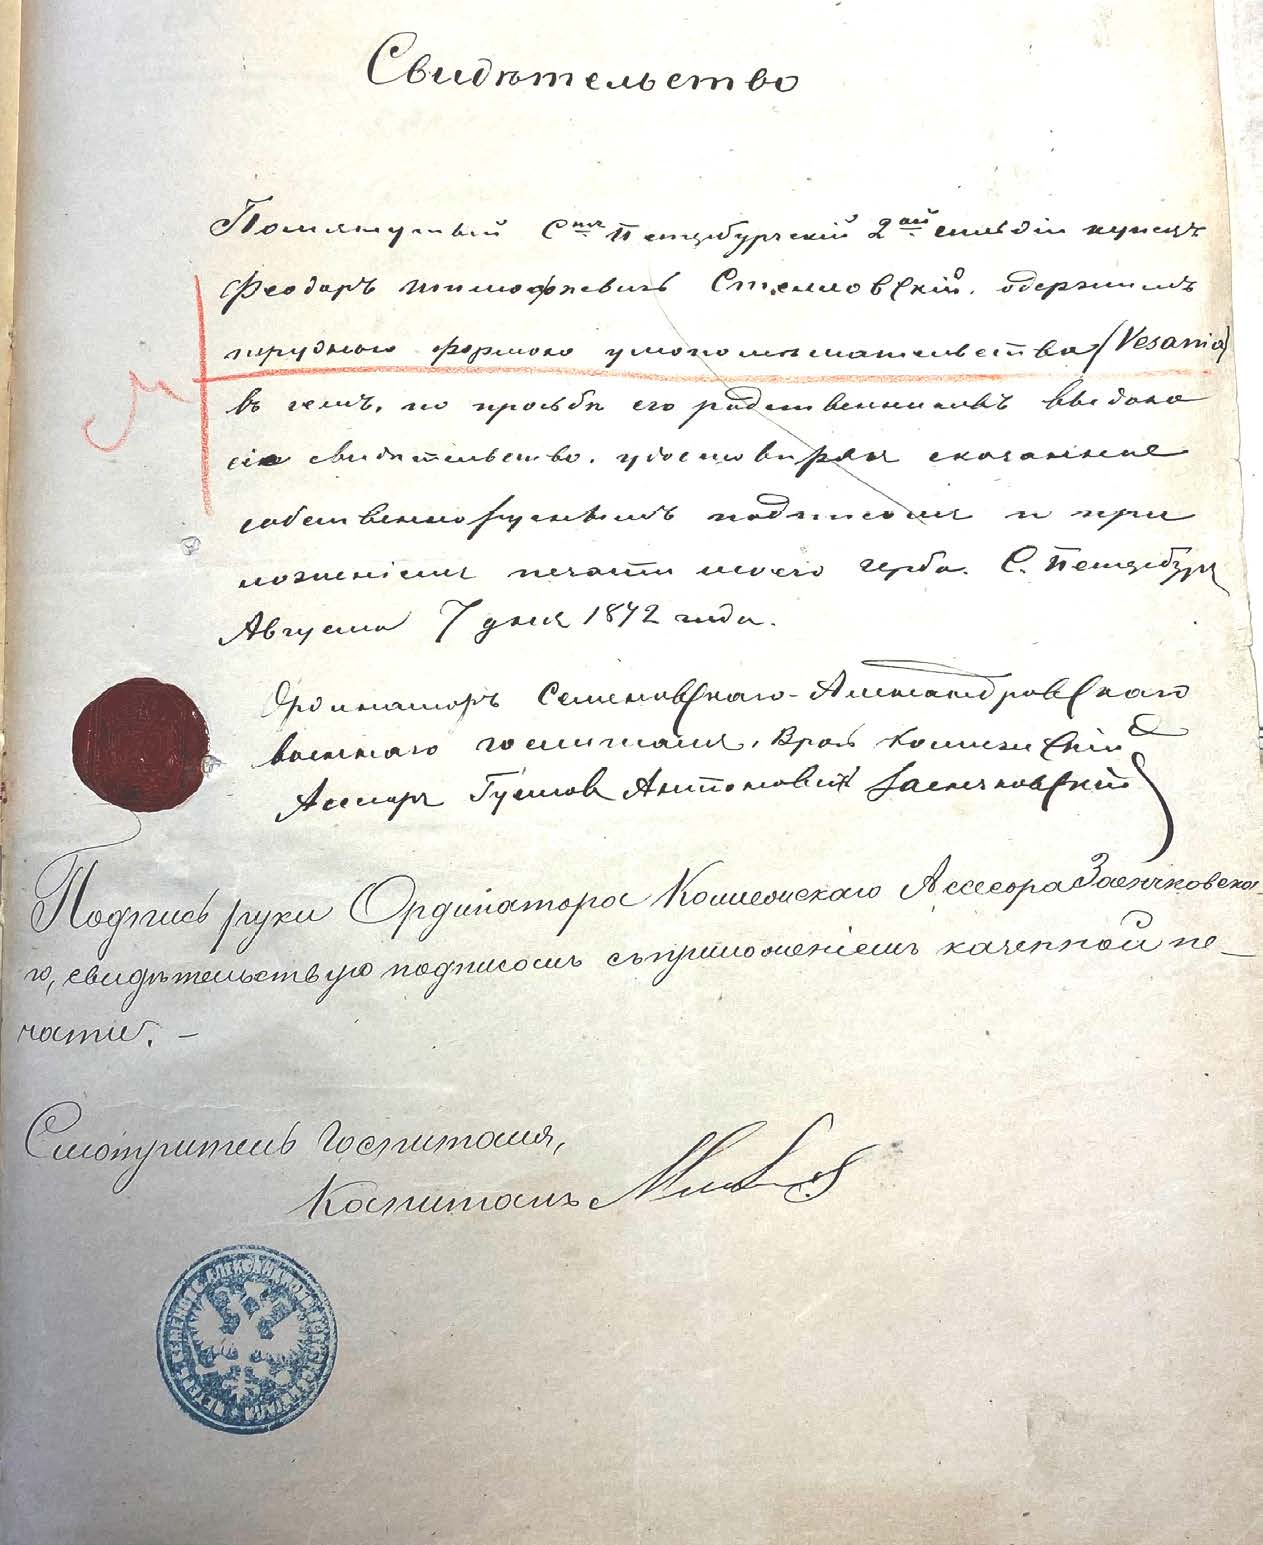 Свидѣтельство
Помянутый С пет Петербургскій 2ой гильдіи купецъ
Феодоръ Тимофѣевичъ Стелловскій. одержимъ
трудною формою умопомѣшательства (Vesania)
въ чемъ, по просьбѣ его родственниковъ выдано
сіе свидѣтельство. удостовѣряя сказанное
собственноручнымъ подписомъ и при
ложеніемъ печати моего герба. С. Петербургъ
Августа 7 дня 1872 года.
Ординаторъ Семеновскаго-Александровскаго
военнаго госпиталя, Врачъ Коллежскій
Ассесоръ Густавъ Антоновичъ Заенчковскій
Подпись руки Ординатора Коллежскаго Ассесора Заенчковска-
го, свидѣтельствую подписомъ съ приложеніемъ казенной пе-
чати. –
Смотритель Госпиталя,
Капитанъ